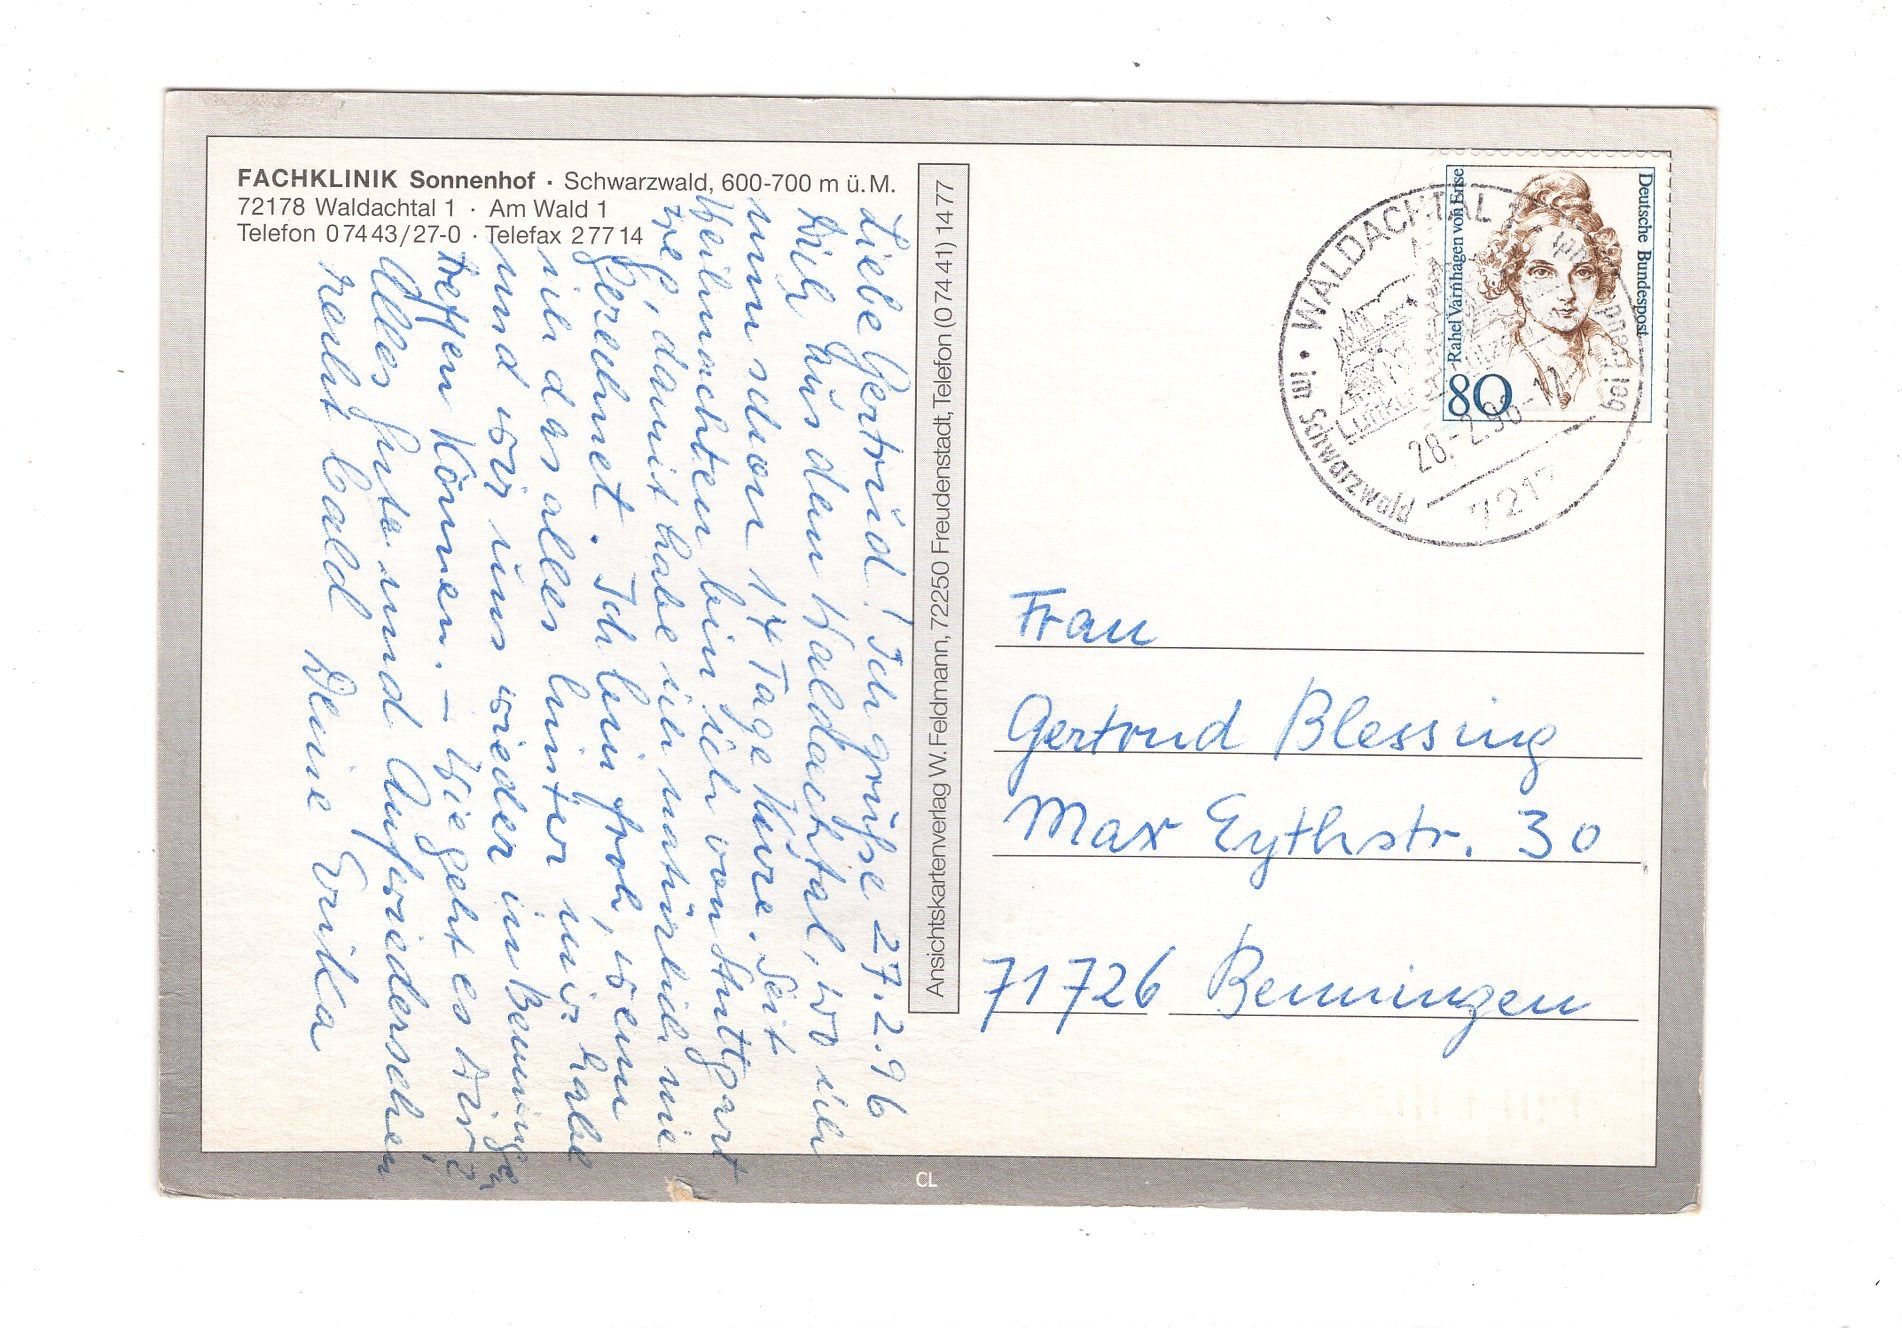 FACHKLINIK Sonnenhof · Schwarzwald, 600-700 m ü. M.
72178 Waldachtal 1 · Am Wald 1
Telefon 0 74 43 / 27-0 · Telefax 2 77 14
Liebe Gertrud! Ich grüße 27.2.96
Dich aus dem Waldachtal, wo ich
nun schon 14 Tage Kure. Seit
Weihnachten bin ich von Stuttgart
weg, damit habe ich natürlich nie
gerechnet. Ich bin froh, wenn
ich das alles hinter mir habe
und wir uns wieder in Benningen
treffen können. – Wie geht es Dir?
Alles Gute und Aufwiedersehen
recht bald Deine Erika
Ansichtskartenverlag W. Feldmann, 72250 Freudenstadt, Telefon (0 74 41) 14 77
WALDACHTAL 1
im Schwarzwald
28.-2.96-12
7217
Deutsche Bundespost
Rahel Varnhagen von Ense
80
Frau
Gertrud Blessing
Max Eythstr. 30
71726 Benningen
CL